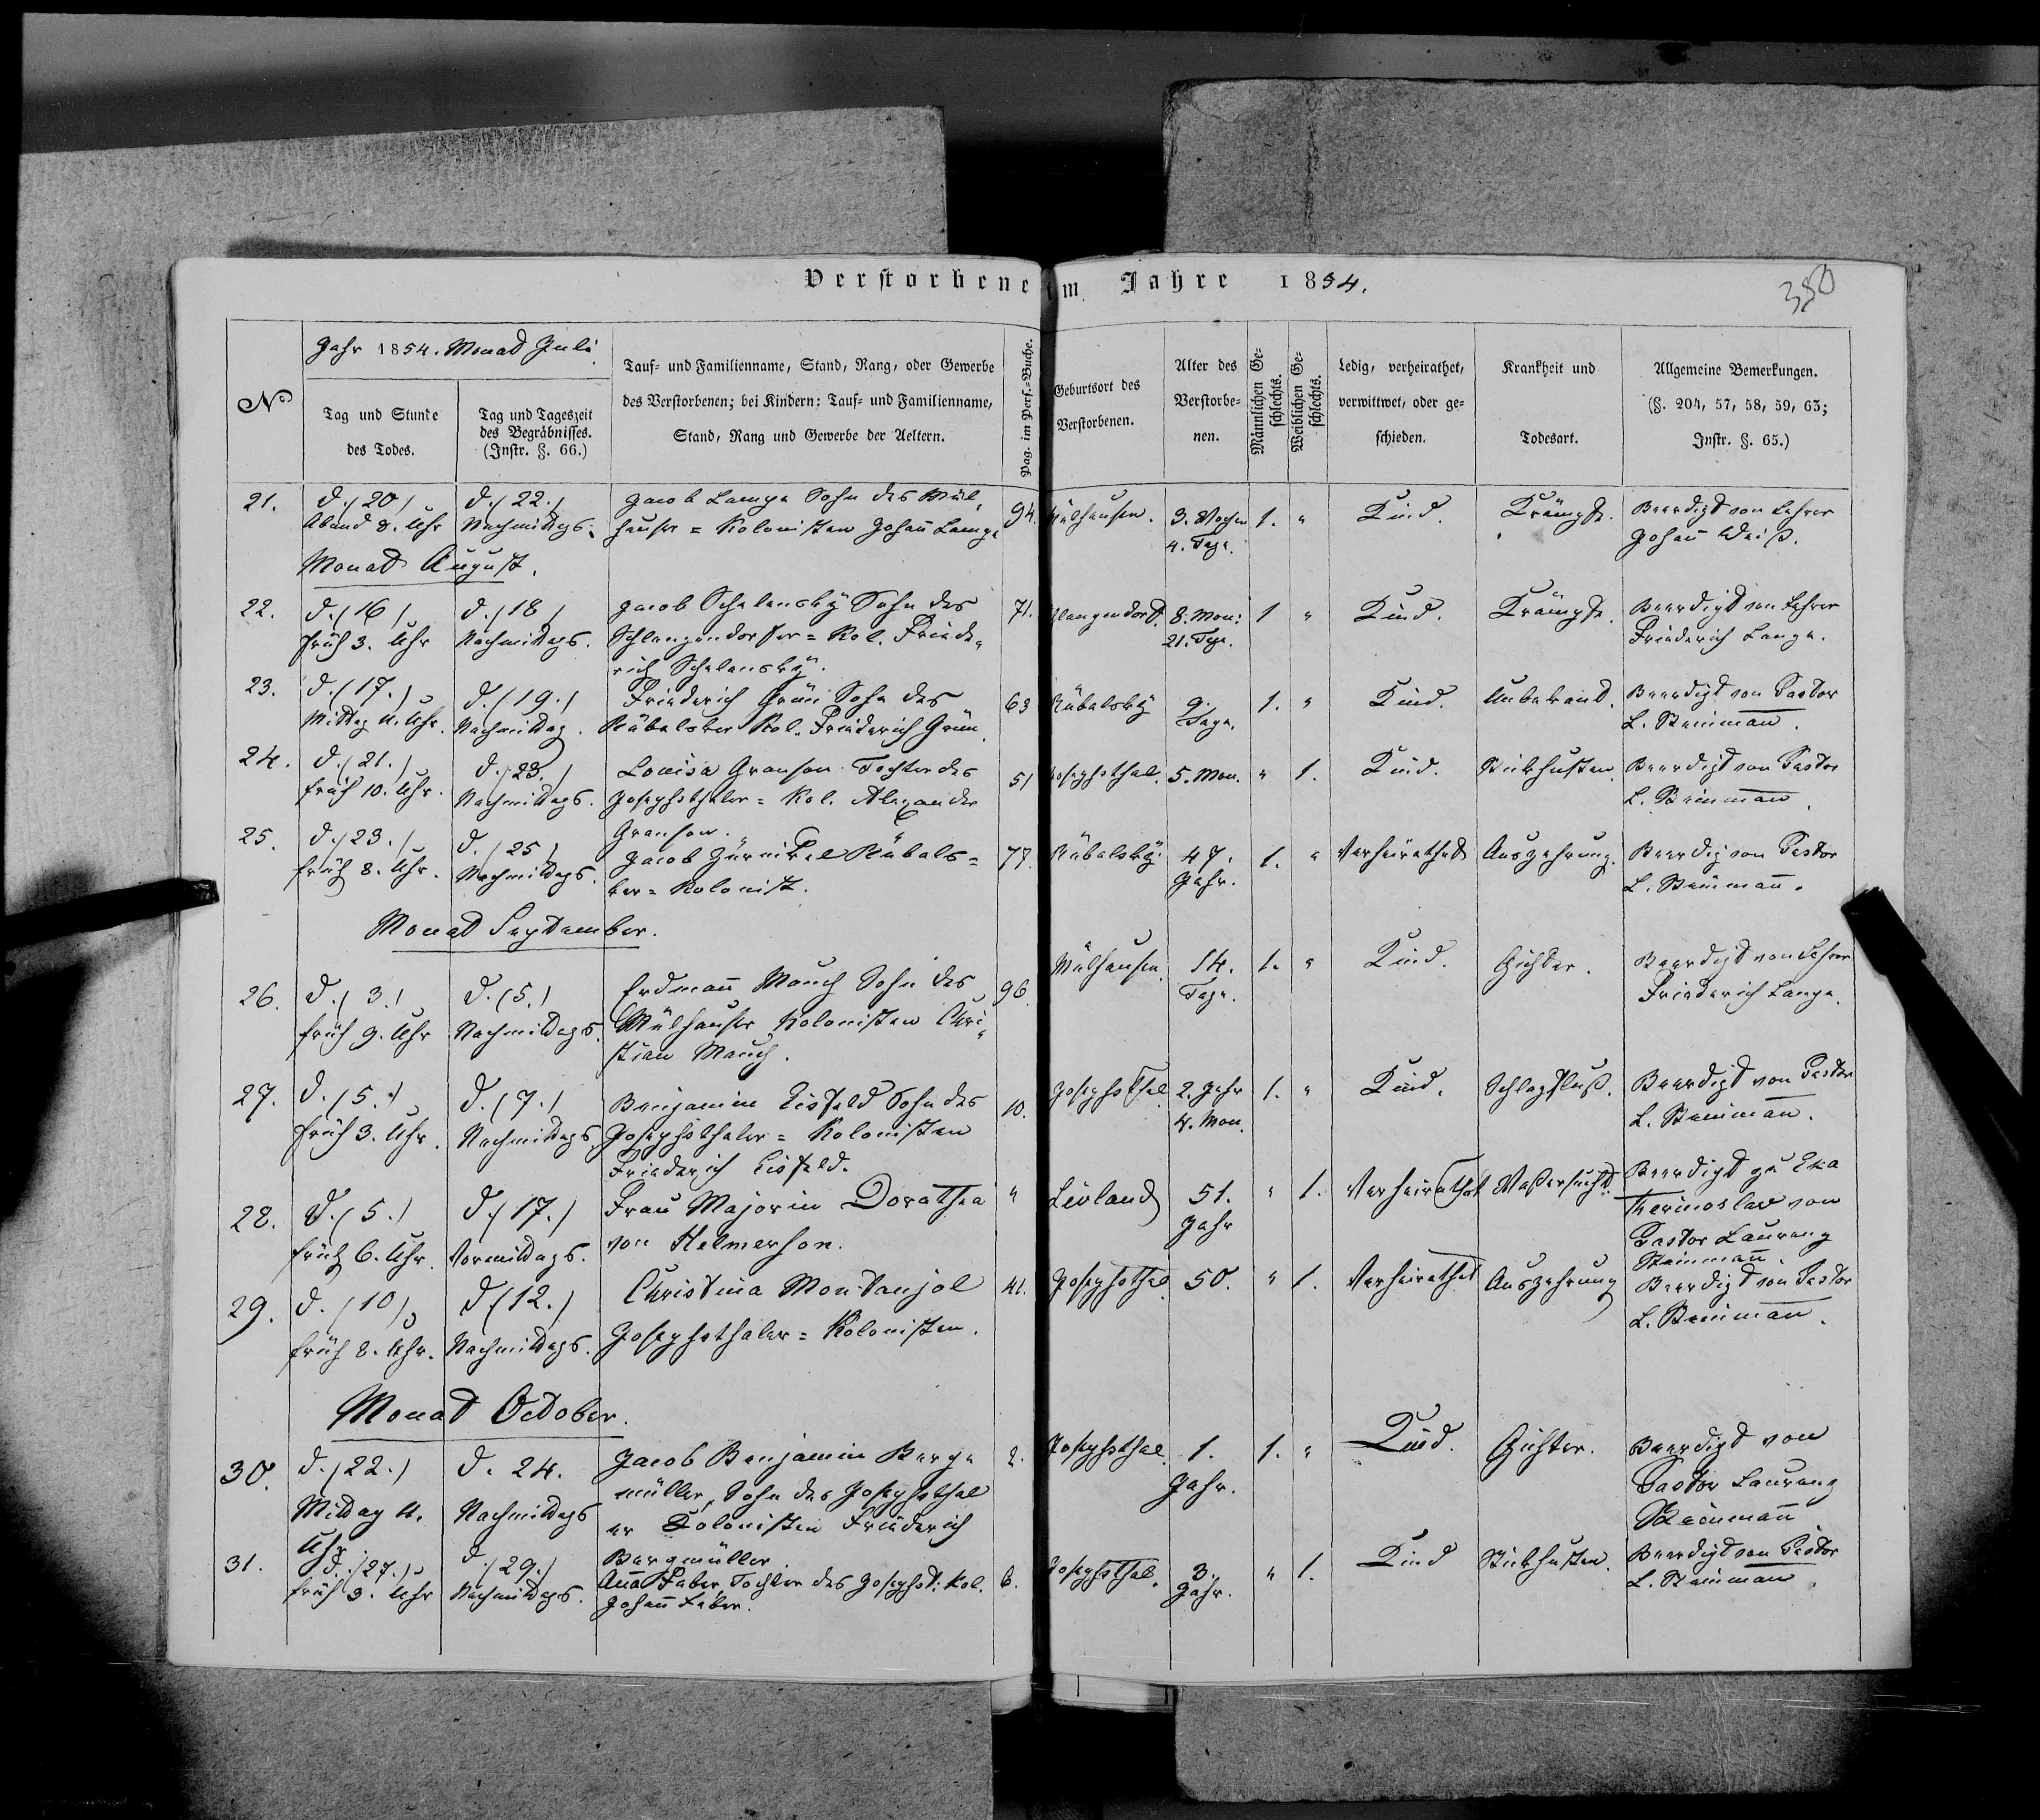 Verstorbene im Jahre 1854.
380
Jahr 1854. Monad Juli
No
Tag und Stunde des Todes.
Tag und Tageszeit des Begräbnisses. (Instr. §. 66.)
Tauf- und Familienname, Stand, Rang, oder Gewerbe
des Verstorbenen; bei Kindern: Tauf- und Familienname,
Stand, Rang und Gewerbe der Aeltern.
Pag. im Pers.-Buche.
Geburtsort des Verstorbenen.
Alter des Verstorbe-nen.
Männlichen Ge-schlechts.
Weiblichen Ge-schlechts.
Ledig, verheirathet, verwittwet, oder ge-schieden.
Krankheit und Todesart.
Allgemeine Bemerkungen.
(§. 204, 57, 58, 59, 63;
Instr. §. 65.)
21. d. (20) d. (22.) Jacob Lange Sohn des Mül- 94. Mülhausen. 3. Wochen 1. " Kind. Krämpfe. Beerdigt von Lehrer
Abend 8. Uhr Nachmittags. hauser = Kolonisten Johañ Lange 4. Tage. Johañ Weiß.
Monad August.
22. d. (16) d. (18) Jacob Schelensky Sohn des 71. Schlangendorf. 8. Mon: 1 " Kind. Krämpfe. Beerdigt von Lehrer
früh 3. Uhr Nachmittags. Schlangendorfer = Kol. Friede- 21. Tage. Friederich Lange.
rich Schelensky.
23. d. (17.) d. (19.) Friederich Grün Sohn des 63 Rübalsky 9. 1. " Kind. Unbekand. Beerdigt von Pastor
Mittag u. Uhr. Nachmittag. Rübalsker Kol. Friederich Grün. Tage. L. Steinmañ.
24. d. (21.) d. (23.) Louisa Granson Tochter des 51 Josephsthal. 5. Mon. " 1. Kind. Stickhusten. Beerdigt von Pastor
früh 10. Uhr. Nachmittags. Josephsthaler = Kol. Alexander L. Steinmañ.
Granson.
25. d. (23.) d. (25) Jacob Zürnikel Rübals= 77. Rübalsky. 47. 1. " Verheirathed Auszehrung. Beerdig von Pastor
früh 8. Uhr. Nachmittags. ker = Kolonist. Jahr. L. Steinmañ.
Monad September.
26. d. (3.) d. (5.) Erdmañ Mauch Sohn des 96. Mülhausen. 14. 1. " Kind. Gichter. Beerdigt von Lehrer
früh 9. Uhr Nachmittags. Mülhauser Kolonisten Chri- Tage. Friederich Lange.
stian Mauch.
27. d. (5.) d. (7.) Benjamin Eisfeld Sohn des 10. Josephsthal 2. Jahr 1. " Kind. Schlagfluß. Beerdigt von Pastor
früh 3. Uhr. Nachmittags Josephsthaler = Kolonisten 4. Mon. L. Steinmañ.
Friederich Eisfeld.
28. d. (5.) d. (17.) Frau Majorin Dorathea " Livland 51. " 1. Verheirathet Waßersucht. Beerdigt zu Eka
früh 6. Uhr. Vormittags. von Helmerson. Jahr therinoslav von
Pastor Laurenz
Steinmañ.
29. d. (10) d (12.) Christina Montanjol 41. Josephsthal. 50. " 1. Verheirathet Auszehrung Beerdigt von Pastor
früh 8. Uhr. Nachmittags. Josephsthaler = Kolonisten. L. Steinmañ.
Monad October.
30. d. (22.) d. 24. Jacob Benjamin Berge 2. Josephsthal. 1. 1. " Kind. Gichter. Beerdigt von
Mittag u. Nachmittags müller, Sohn des Josephsthal Jahr. Pastor Laurenz
Uhr er Kolonisten Friederich Steinmañ
Bergmüller.
31. d. (27.) d. (29.) Aña Faber, Tochter des Josephst. Kol. 6. Josephsthal. 3. " 1. Kind Stickhusten. Beerdigt von Pastor
früh 3. Uhr Nachmittags. Johañ Faber. Jahr. L. Steinmañ.